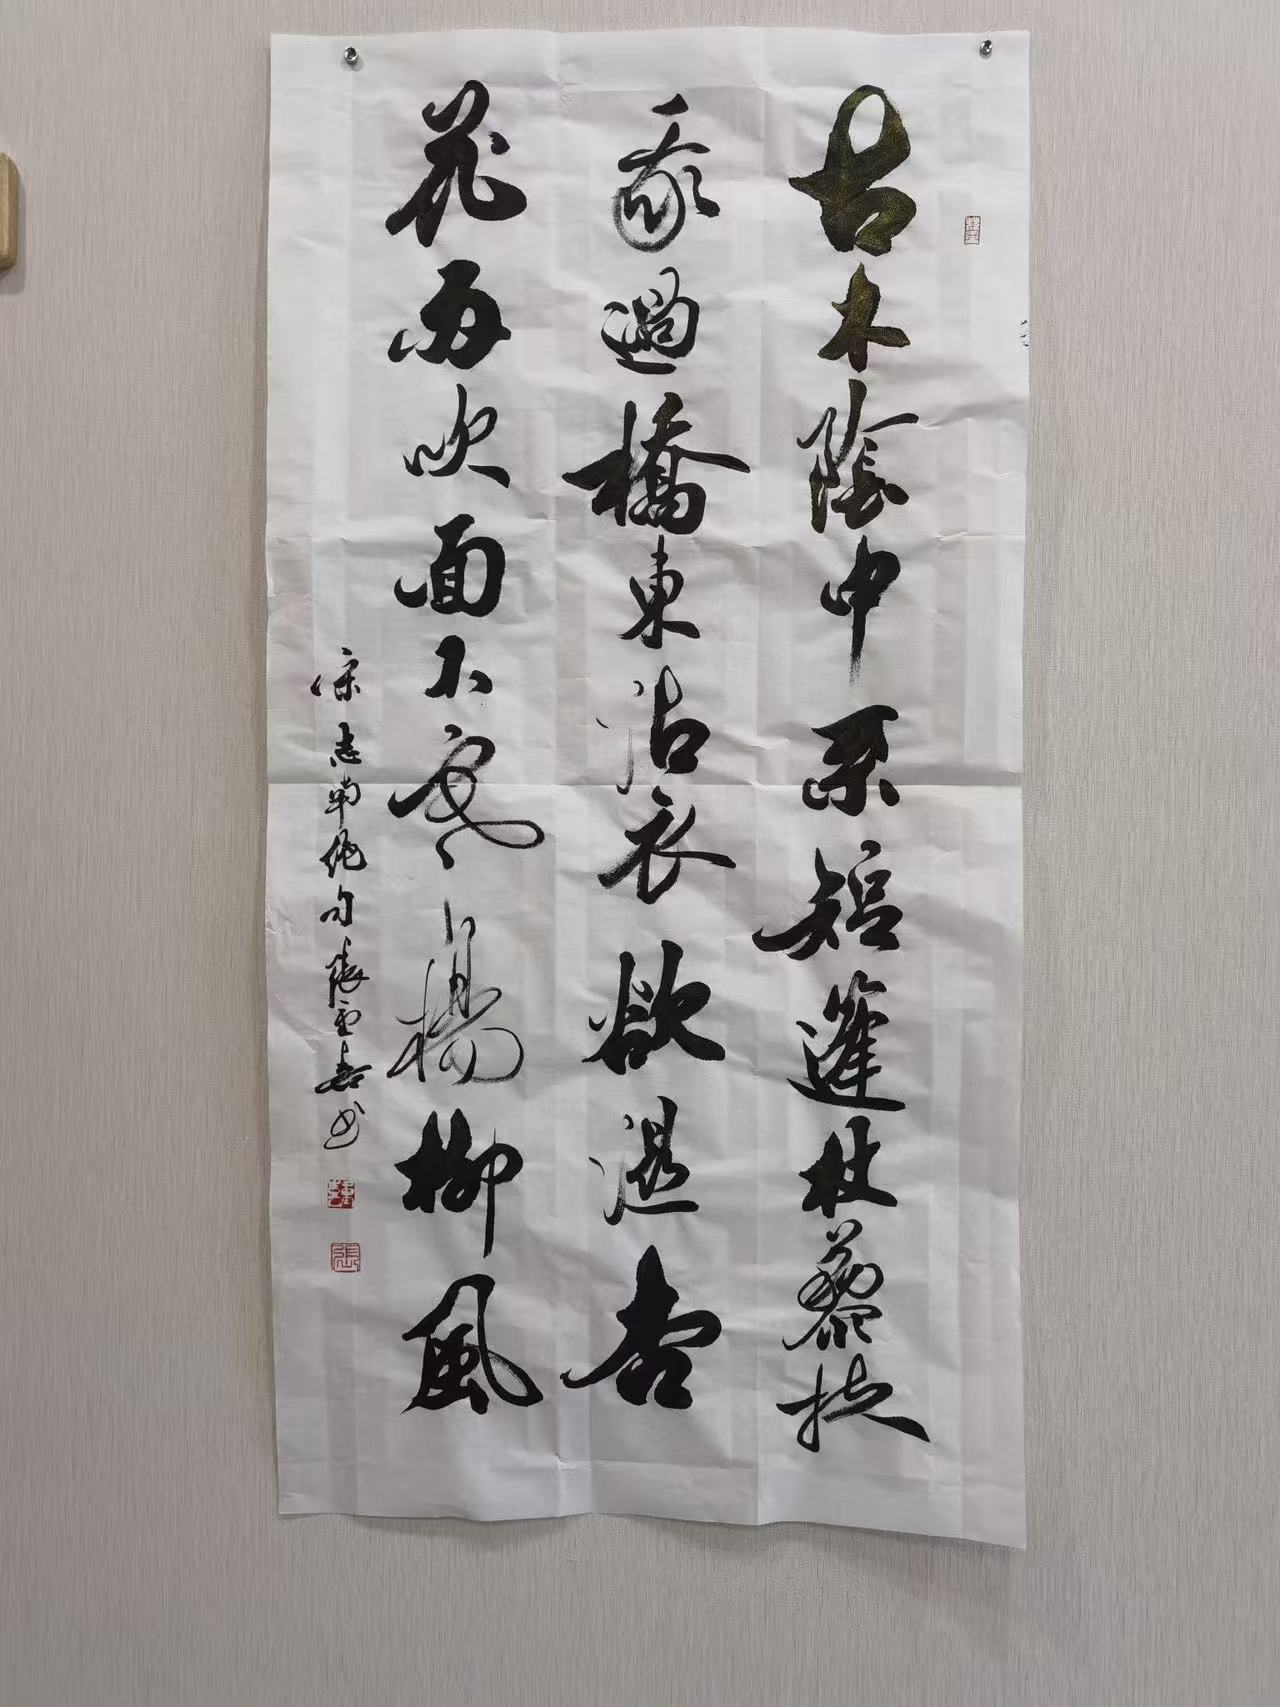 古木陰中系短篷杖藜扶
我過橋東沾衣欲濕杏
花雨吹面不寒楊柳風
宋志南絕句張重書
張